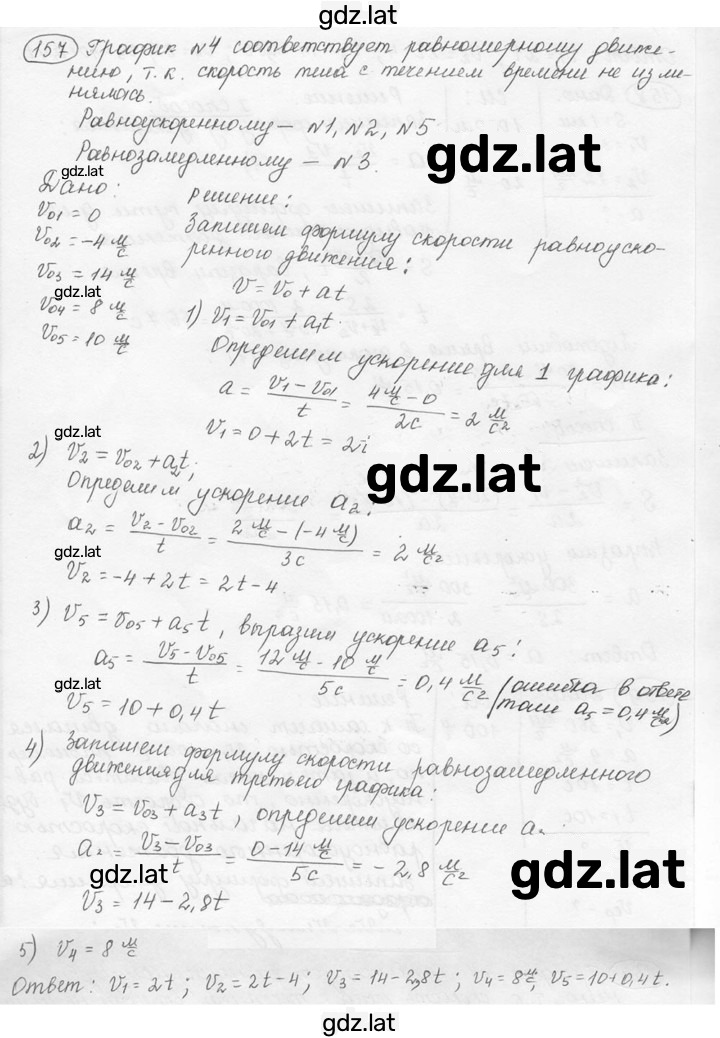 gdz.lat
157 График №4 соответствует равномерному движе-
нию, т.к. скорость тела с течением времени не изме-
нялась.
Равноускоренному – №1, №2, №5
Равнозамедленному – №3.
gdz.lat
gdz.lat
Дано:
Решение:
gdz.lat
V₀₁ = 0
V₀₂ = -4 м/с
V₀₃ = 14 м/с
gdz.lat
V₀₄ = 8 м/с
V₀₅ = 10 м/с
Запишем формулу скорости равноуско-
ренного движения:
V = V₀ + at
1) V₁ = V₀₁ + a₁t.
Определим ускорение для 1 графика:
a = (V₁ - V₀₁)/t = (4 м/с - 0)/2с = 2 м/с²
V₁ = 0 + 2t = 2t
gdz.lat
gdz.lat
2) V₂ = V₀₂ + a₂t;
Определим ускорение a₂:
a₂ = (V₂ - V₀₂)/t = (2 м/с - (-4 м/с))/3с = 2 м/с²
V₂ = -4 + 2t = 2t - 4
3) V₅ = V₀₅ + a₅t, выразим ускорение a₅:
a₅ = (V₅ - V₀₅)/t = (12 м/с - 10 м/с)/5с = 0,4 м/с² (ошибка в ответе
gdz.lat
V₅ = 10 + 0,4t
a₅ = 0,4 м/с²)
4) Запишем формулу скорости равнозамедленного
движения для третьего графика:
V₃ = V₀₃ + a₃t, определим ускорение a.
a = (V₃ - V₀₃)/t = (0 - 14 м/с)/5с = - 2,8 м/с²
gdz.lat
gdz.lat
V₃ = 14 - 2,8t
5) V₄ = 8 м/с
Ответ: V₁ = 2t; V₂ = 2t - 4; V₃ = 14 - 2,8t; V₄ = 8 м/с, V₅ = 10 + 0,4t.
gdz.lat